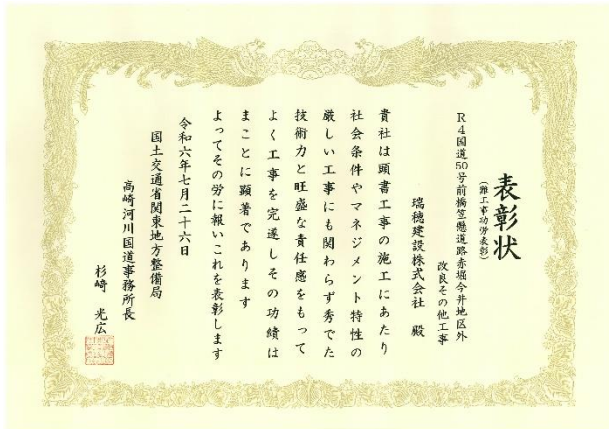 表彰状
(難工事功労表彰)
R4国道50号前橋笠懸道路赤堀今井地区外
改良その他工事
瑞穂建設株式会社 殿
貴社は頭書工事の施工にあたり
社会条件やマネジメント特性の
厳しい工事にも関わらず秀でた
技術力と旺盛な責任感をもって
よく工事を完遂しその功績は
まことに顕著であります
よってその労に報いこれを表彰します
令和六年七月二十六日
国土交通省関東地方整備局
高崎河川国道事務所長
杉崎 光広